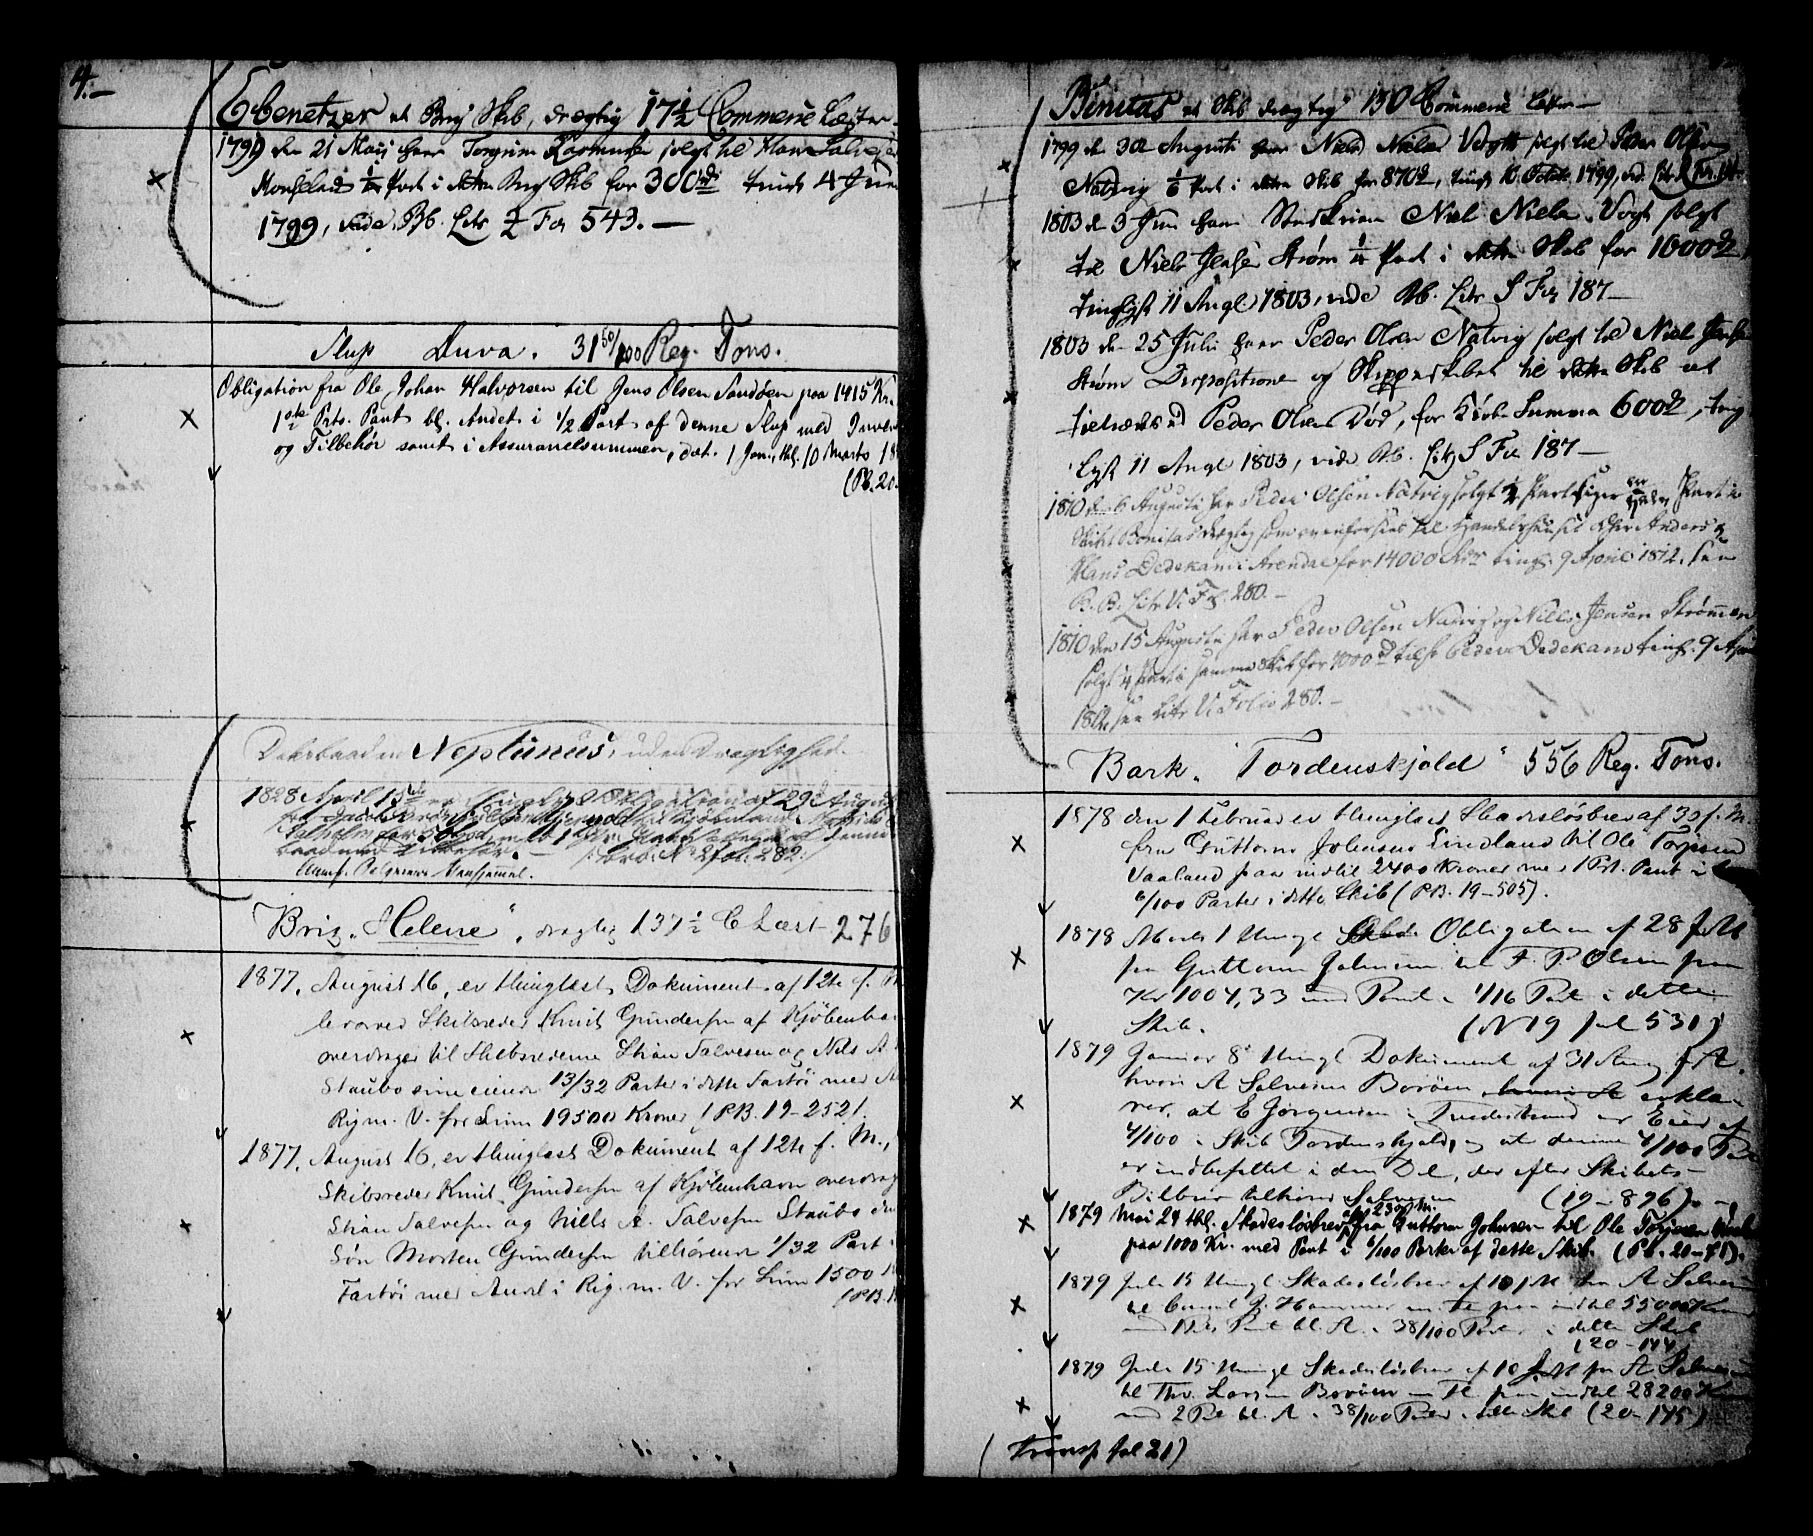 4.–
Ebenetzer et Brig Skib, drægtig 17½ Commerce Læster–
1799 den 21 Maij haver Torgrim Rasmusen solgt til Hans Salvesen
¼ Part i dette Brig Skib for 300 rd tinl. 4 Juni
1799, vide Pb. Litr Q Fol 543.–
Slup Duva. 31 50/100 Reg. Tons.
Obligation fra Ole Johan Halvorsen til Jens Olsen Sandøen paa 1415 Kr.
1ste Prts. Pant bl. Andet i 1/2 Part af denne Slup med Inven
og Tilbehør samt i Assurancesummen, dat. 1 Jan., thl. 10 Marts 18
(Pb. 20.
Neptunus, uden Drægtighed.
1828 April 15de er tinglyst Obligation af 29 August
Brig „Helene“, drægtig 137½ C Læst– 276
1877. August 16, er thinglæst Dokument af 12te f. M
hvorved Skibsreder Knud Gundersen af Kjöbenhavn
overdrager til Skibsrederne Stian Salvesen og Nils A
Staubo sine eiende 13/32 Parter i dette Fartöi med A
Rig m. V. for Sum 19500 Kroner (PB. 19–252).
1877. August 16, er thinglæst Dokument af 12te f. M.,
Skibsreder Knud Gundersen af Kjöbenhavn overdrag
Stian Salvesen og Nills A. Salvesen Staubo den
Sön Morten Gundersen tilhörende 1/32 Part
Fartöi med Andel i Rig. m. V. for Sum 1500
(PB. 1
Bonitas et Skib drægtig 130 Commerce Læster–
1799 den 30 Augusti haver Niels Nielsen Vogt solgt til Peder Olsen
Natvig 1/6 Part i dette Skib for 870 rd, tingl. 16 October 1799, vid. Litr.
1803 den 3 Juni haver Niels Nielsen Vogt solgt
til Niels Jensen Strøm ¼ Part i dette Skib for 1600 rd
tinglyst 11 Augl 1803, vide Pb. Litr S Fol 187–
1803 den 25 Julii haver Peder Olsen Natvig solgt til Niels Jensen
Strøm Dispositionen og Skipperskabet til dette Skib at
tiltræde ved Peder Olsens Død, for Kiøbe Summa 600 rd, ting
lyst 11 Augl 1803, vide Pb. Litr S Fol 187–
1810 den 6 Augusti har Peder Olsen Natvig solgt ¼ Part siger en Part i
Skibet Bonitas drægtig som ovenforstaaet til Handelshuuset Anders &
Hans Dedekam i Arendal for 14000 Rdr tingl. 9 April 1812. see
P. B. Litr U. Fol. 280.–
1810 den 15 Augusti har Peder Olsen Natvig og Niels Jensen Strømmen
solgt ¼ Part i samme Skib for 1000 rd til Peder Dedekam tingl. 9 April
1812. see Litr U Folio 280.–
Bark. „Tordenskjold“ 556 Reg. Tons.
1878 den 1 Februar er thinglæst Skadesløsbrev af 30 f. M.
fra Guttorm Johnsen Lindland til Ole Torjesen
Vaaland paa indtil 2400 Kroner med 1 Prt. Pant i
6/100 Parter i dette Skib (PB. 19–505).
1878 Marts 1 thingl Obligation af 28 f. M
fra Guttorm Johnsen til F. P. Olsen paa
Kr 1004,33 med Pant i 1/16 Part i dette
Skib. (N 19 fol 531)
1879 Januar 8d thingl Dokument af 31 Aug. f. A.
hvori A Salvesen Borøen hvori A erklæ
rer, at E Jørgensen i Tvedestrand er Eier af
4/100 i Skib Tordenskjold, og at denne 4/100 Part
er indbefattet i den Del, der efter Skibets
Bilbrev tilhører Salvesen (19–896).–
1879 Mai 24 thl. Skadesløsbrev af 23 d. M. fra Guttorm Johnsen til Ole Torjesen
paa 1000 Kr. med Pant i 6/100 Parter af dette Skib. (Pb. 20–71).
1879 Juli 15 thingl Skadesløsbrev af 10 f. M fra A Salvesen
til J. Hammer paa indtil 55000 Kroner
med 1 Prs Pant bl. A. i 38/100 Parter i dette Skib
(20–144
1879 Juli 15 thingl Skadesløsbrev af 10 f. M fra A Salvesen
til Thv. Larsen Borøen paa indtil 28200 Kroner
med 2 Pt bl. A. i 38/100 Parter i dette Skib (20–145)
(transp fol 21)